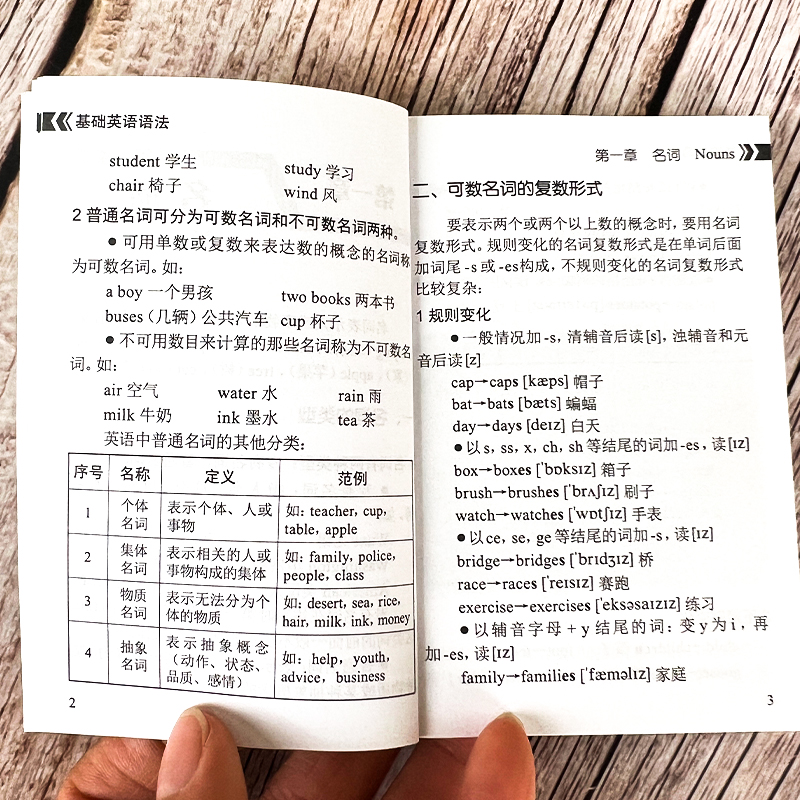 基础英语语法
student 学生 study 学习
chair 椅子 wind 风
2 普通名词可分为可数名词和不可数名词两种。
●可用单数或复数来表达数的概念的名词称
为可数名词。如:
a boy 一个男孩 two books 两本书
buses(几辆)公共汽车 cup 杯子
●不可用数目来计算的那些名词称为不可数名
词。如:
air 空气 water 水 rain 雨
milk 牛奶 ink 墨水 tea 茶
英语中普通名词的其他分类:
序号 名称 定义 范例
1 个体名词 表示个体、人或事物 如: teacher, cup, table, apple
2 集体名词 表示相关的人或事物构成的集体 如: family, police, people, class
3 物质名词 表示无法分为个体的物质 如: desert, sea, rice, hair, milk, ink, money
4 抽象名词 表示抽象概念(动作、状态、品质、感情) 如: help, youth, advice, business
2
第一章 名词 Nouns
二、可数名词的复数形式
要表示两个或两个以上数的概念时, 要用名词
复数形式。规则变化的名词复数形式是在单词后面
加词尾-s或-es构成, 不规则变化的名词复数形式
比较复杂:
1 规则变化
●一般情况加-s, 清辅音后读[s], 浊辅音和元
音后读[z]
cap→caps [kæps] 帽子
bat→bats [bæts] 蝙蝠
day→days [deɪz] 白天
●以 s, ss, x, ch, sh 等结尾的词加-es, 读[ɪz]
box→boxes [ˈbɒksɪz] 箱子
brush→brushes [ˈbrʌʃɪz] 刷子
watch→watches [ˈwɒtʃɪz] 手表
●以 ce, se, ge 等结尾的词加-s, 读[ɪz]
bridge→bridges [ˈbrɪdʒɪz] 桥
race→races [ˈreɪsɪz] 赛跑
exercise→exercises [ˈeksəsaɪzɪz] 练习
●以辅音字母+y结尾的词: 变y为i, 再
加-es, 读[ɪz]
family→families [ˈfæməlɪz] 家庭
3